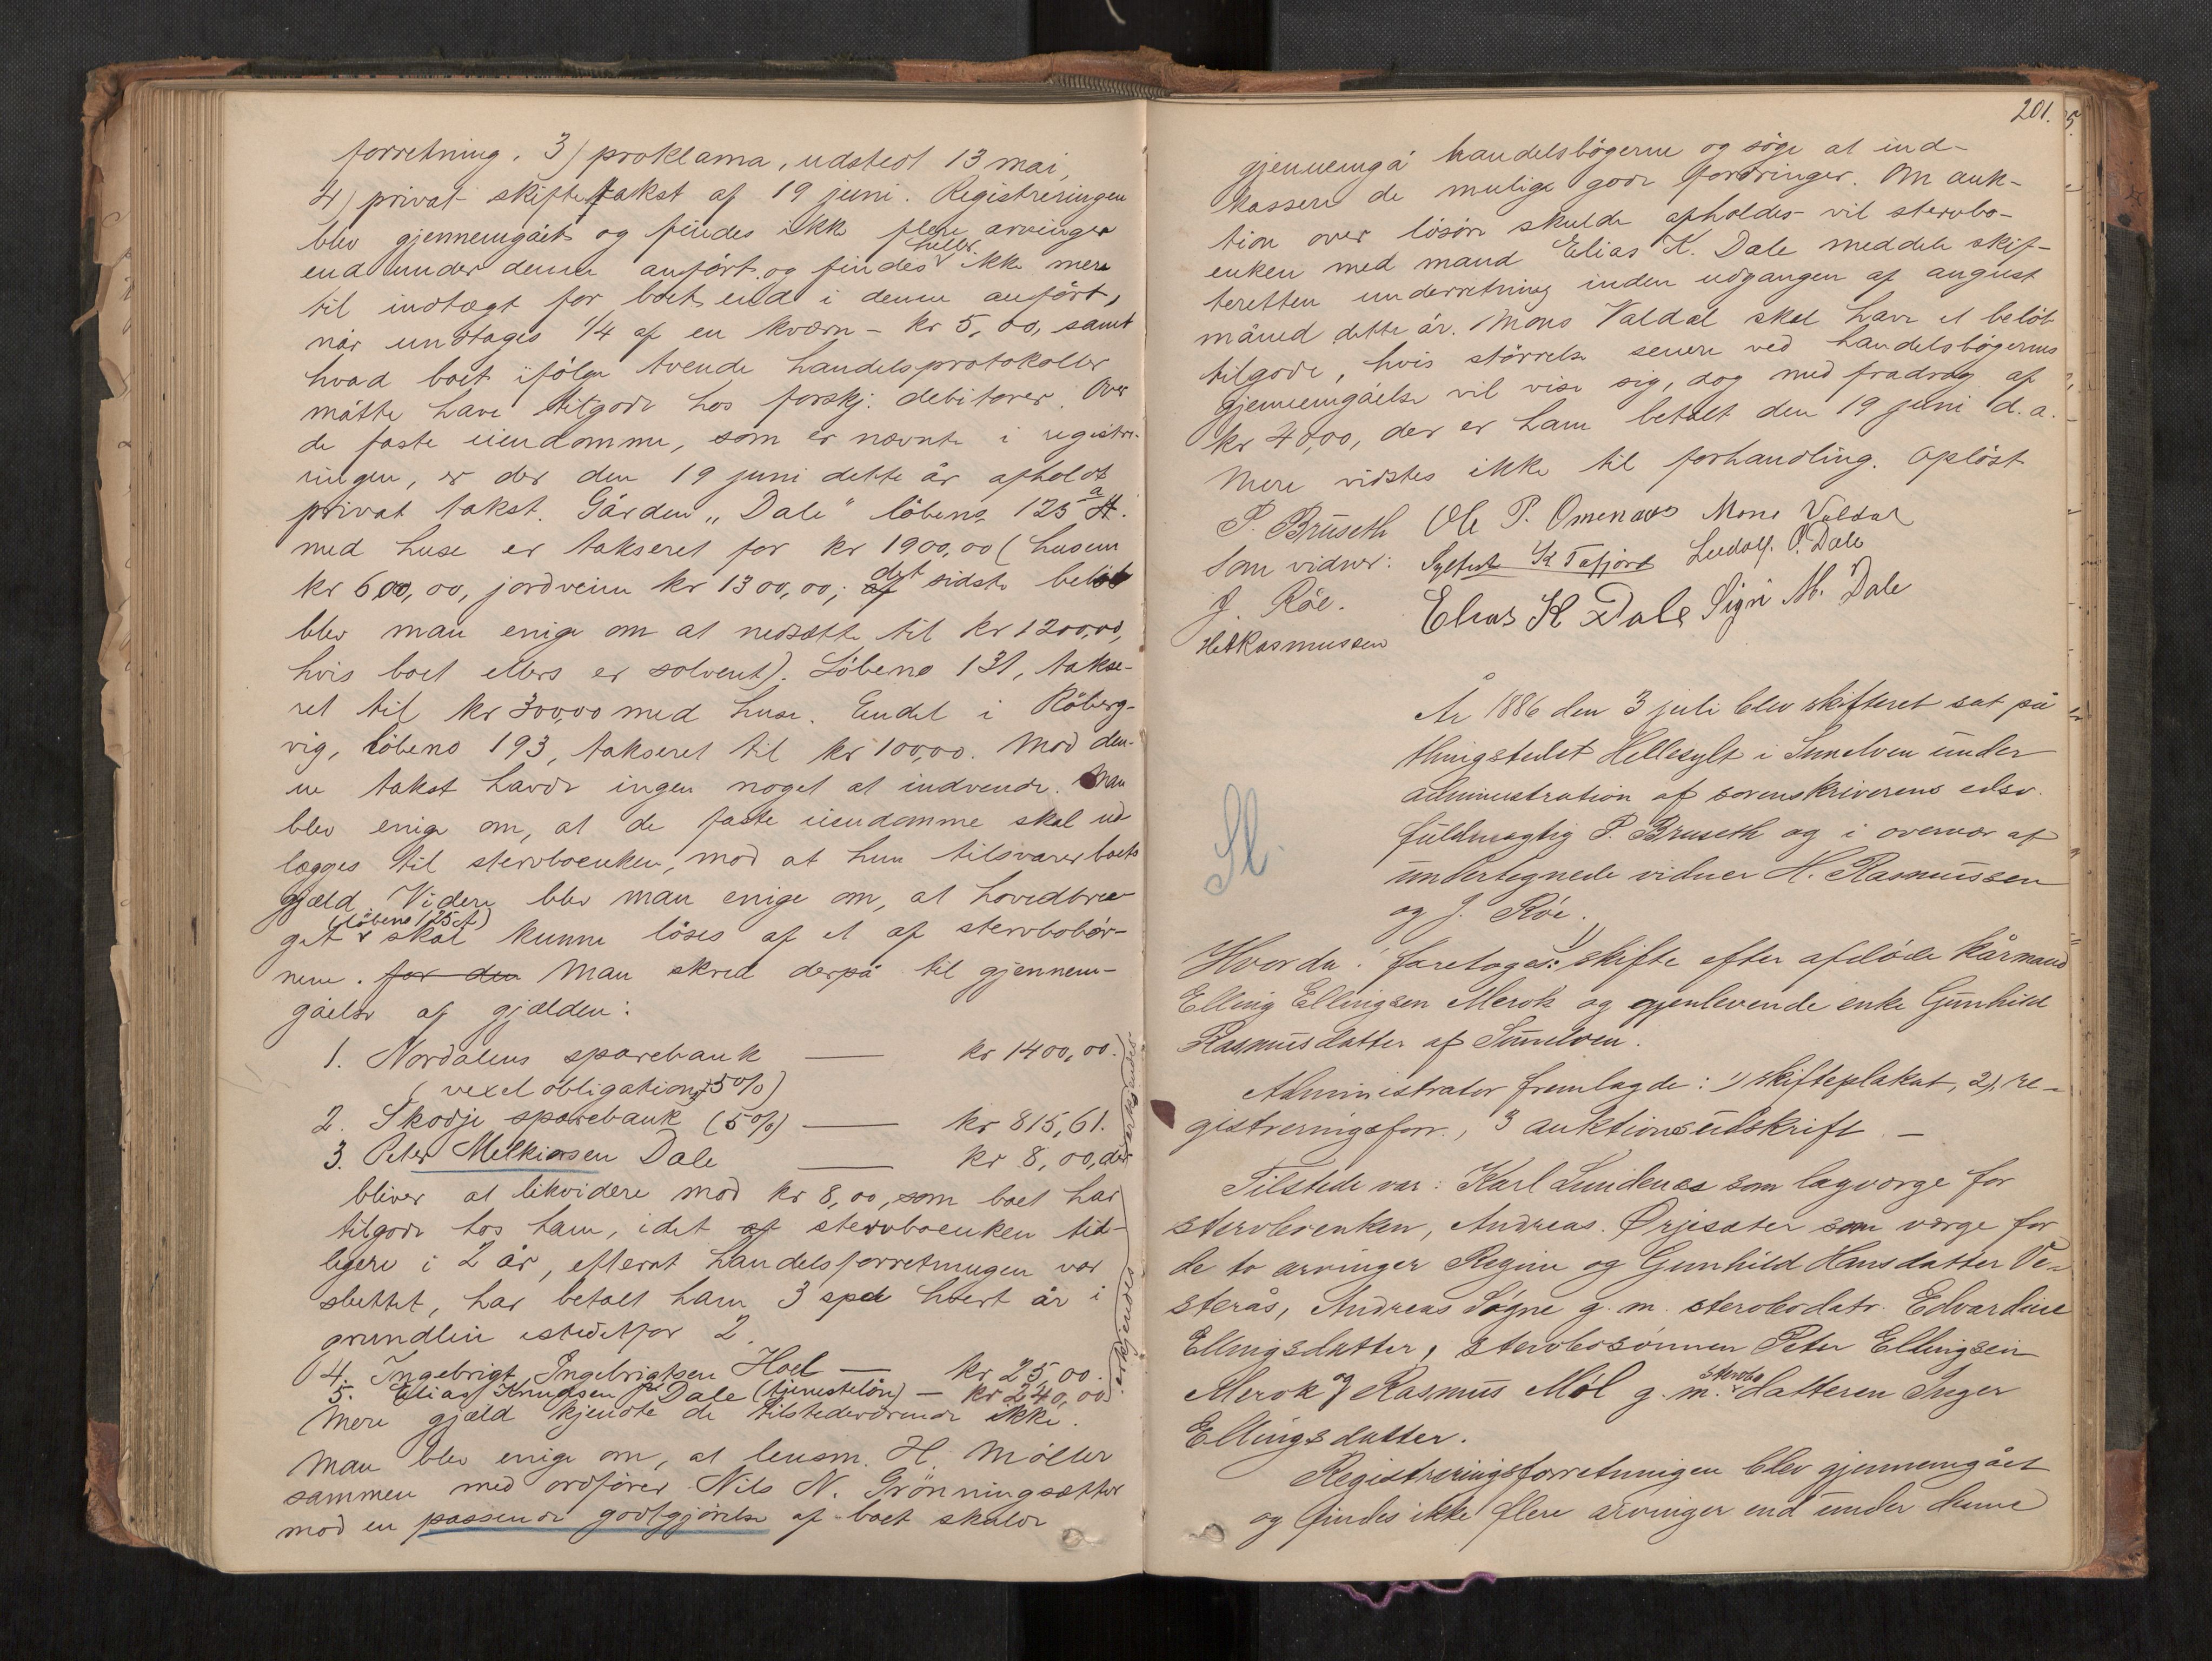 forretning, 3) proklama, udstedt 13 mai,
4) privat skiftetakst af 19 juni. Registreringen
blev gjennemgået og findes ikke flere arvinger
end under denne anført, og findes heller ikke mere
til indtægt for boet end i denne anført,
når undtages 1/4 af en kværn - kr 5,00, samt
hvad boet ifølge tvende handelsprotokoller
måtte have tilgode hos forskj. debitorer. Over
de faste eiendomme, som er nævnte i registre-
ringen, er der den 19 juni dette år afholdt
privat takst. Gården „Dale“ löbeno 125 a
med huse er takseret for kr 1900,00 (husene
kr 600,00, jordveien kr 1300,00; det sidste beløb
blev man enige om at nedsætte til kr 1200,00,
hvis boet ellers er solvent). Löbeno 131, takse-
ret til kr 300,00 med huse. Endel i Röberg-
vig, löbeno 193, takseret til kr 100,00. Mod den-
ne takst havde ingen noget at indvende. Man
blev enige om, at de faste eiendomme skal ud-
lægges til stervboenken, mod at hun tilsvarer boets
gjæld. Videre blev man enige om, at hovedbru-
get (löbeno 125 a) skal kunne löses af et af stervbobör-
nene. for den Man skred derpå til gjennem-
gåelse af gjælden:
1. Nordalens sparebank — kr 1400,00.
(vexelobligation, 5%)
2. Skodje sparebank (5%) — kr 815,61.
3. Peter Melkiorsen Dale — kr 8,00, der
bliver at likvidere mod kr 8,00, som boet har
tilgode hos ham, idet stervboenken tid-
ligere i 2 år, efterat handelsforretningen var
sluttet, har betalt ham 3 spd hvert år i
grundleie istedetfor 2.
4. Ingebrigt Ingebrigtsen Hoel — kr 25,00.
5. Elias Knudsen Dale (tjenestelön) — kr 240,00
erkjendes
Mere gjæld kjendte de tilstedeværende ikke.
Man blev enige om, at lensm. H. Möller
sammen med ordförer Nils N. Grönningsætter
mod en passende godtgjörelse af boet skulde
201.
gjennemgå handelsbögerne og söge at ind-
kassere de mulige gode fordringer. Om auk-
tion over lösöre skulde afholdes vil stervbo-
enken med mand Elias K. Dale meddele skif-
teretten underretning inden udgangen af august
måned dette år. Mons Valdal skal have et belöb
tilgode, hvis störrelse senere ved handelsbögernes
gjennemgåelse vil vise sig, dog med fradrag af
kr 40,00, der er ham betalt den 19 juni d.a.
Mere vidstes ikke til forhandling. Oplöst
P. Bruseth Ole P. Omenaas Mons Valdal
Som vidner: Sylfest K Tafjord Ludolf. P. Dale
J. Röe. Elias K Dale Signi M. Dale
H Rasmussen
År 1886 den 3 juli blev skifteret sat på
thingstedet Hellesylt i Sunelven under
administration af sorenskriverens edsv.
fuldmægtig P. Bruseth og i overvær af
undertegnede vidner H. Rasmussen
og J. Röe.
Sl.
Hvorda: foretoges: 1) skifte efter afdøde kårmand
Elling Ellingsen Merok og gjenlevende enke Gunhild
Rasmusdatter af Sunelven.
Administrator fremlagde: 1) skifteplakat, 2), re-
gistreringsforr., 3 auktionsudskrift. —
Tilstede var: Karl Lundenæs som lagværge for
stervboenken, Andreas Ørjesæter som værge for
de to arvinger Regine og Gunhild Hansdatter Ve-
sterås, Andreas Søgne g. m. stervbodatr. Edvardine
Ellingsdatter, stervbosønnen Peter Ellingsen
Merok og Rasmus Möl g. m. stervbodatteren Inger
Ellingsdatter.
Registreringsforretningen blev gjennemgået
og findes ikke flere arvinger end under denne